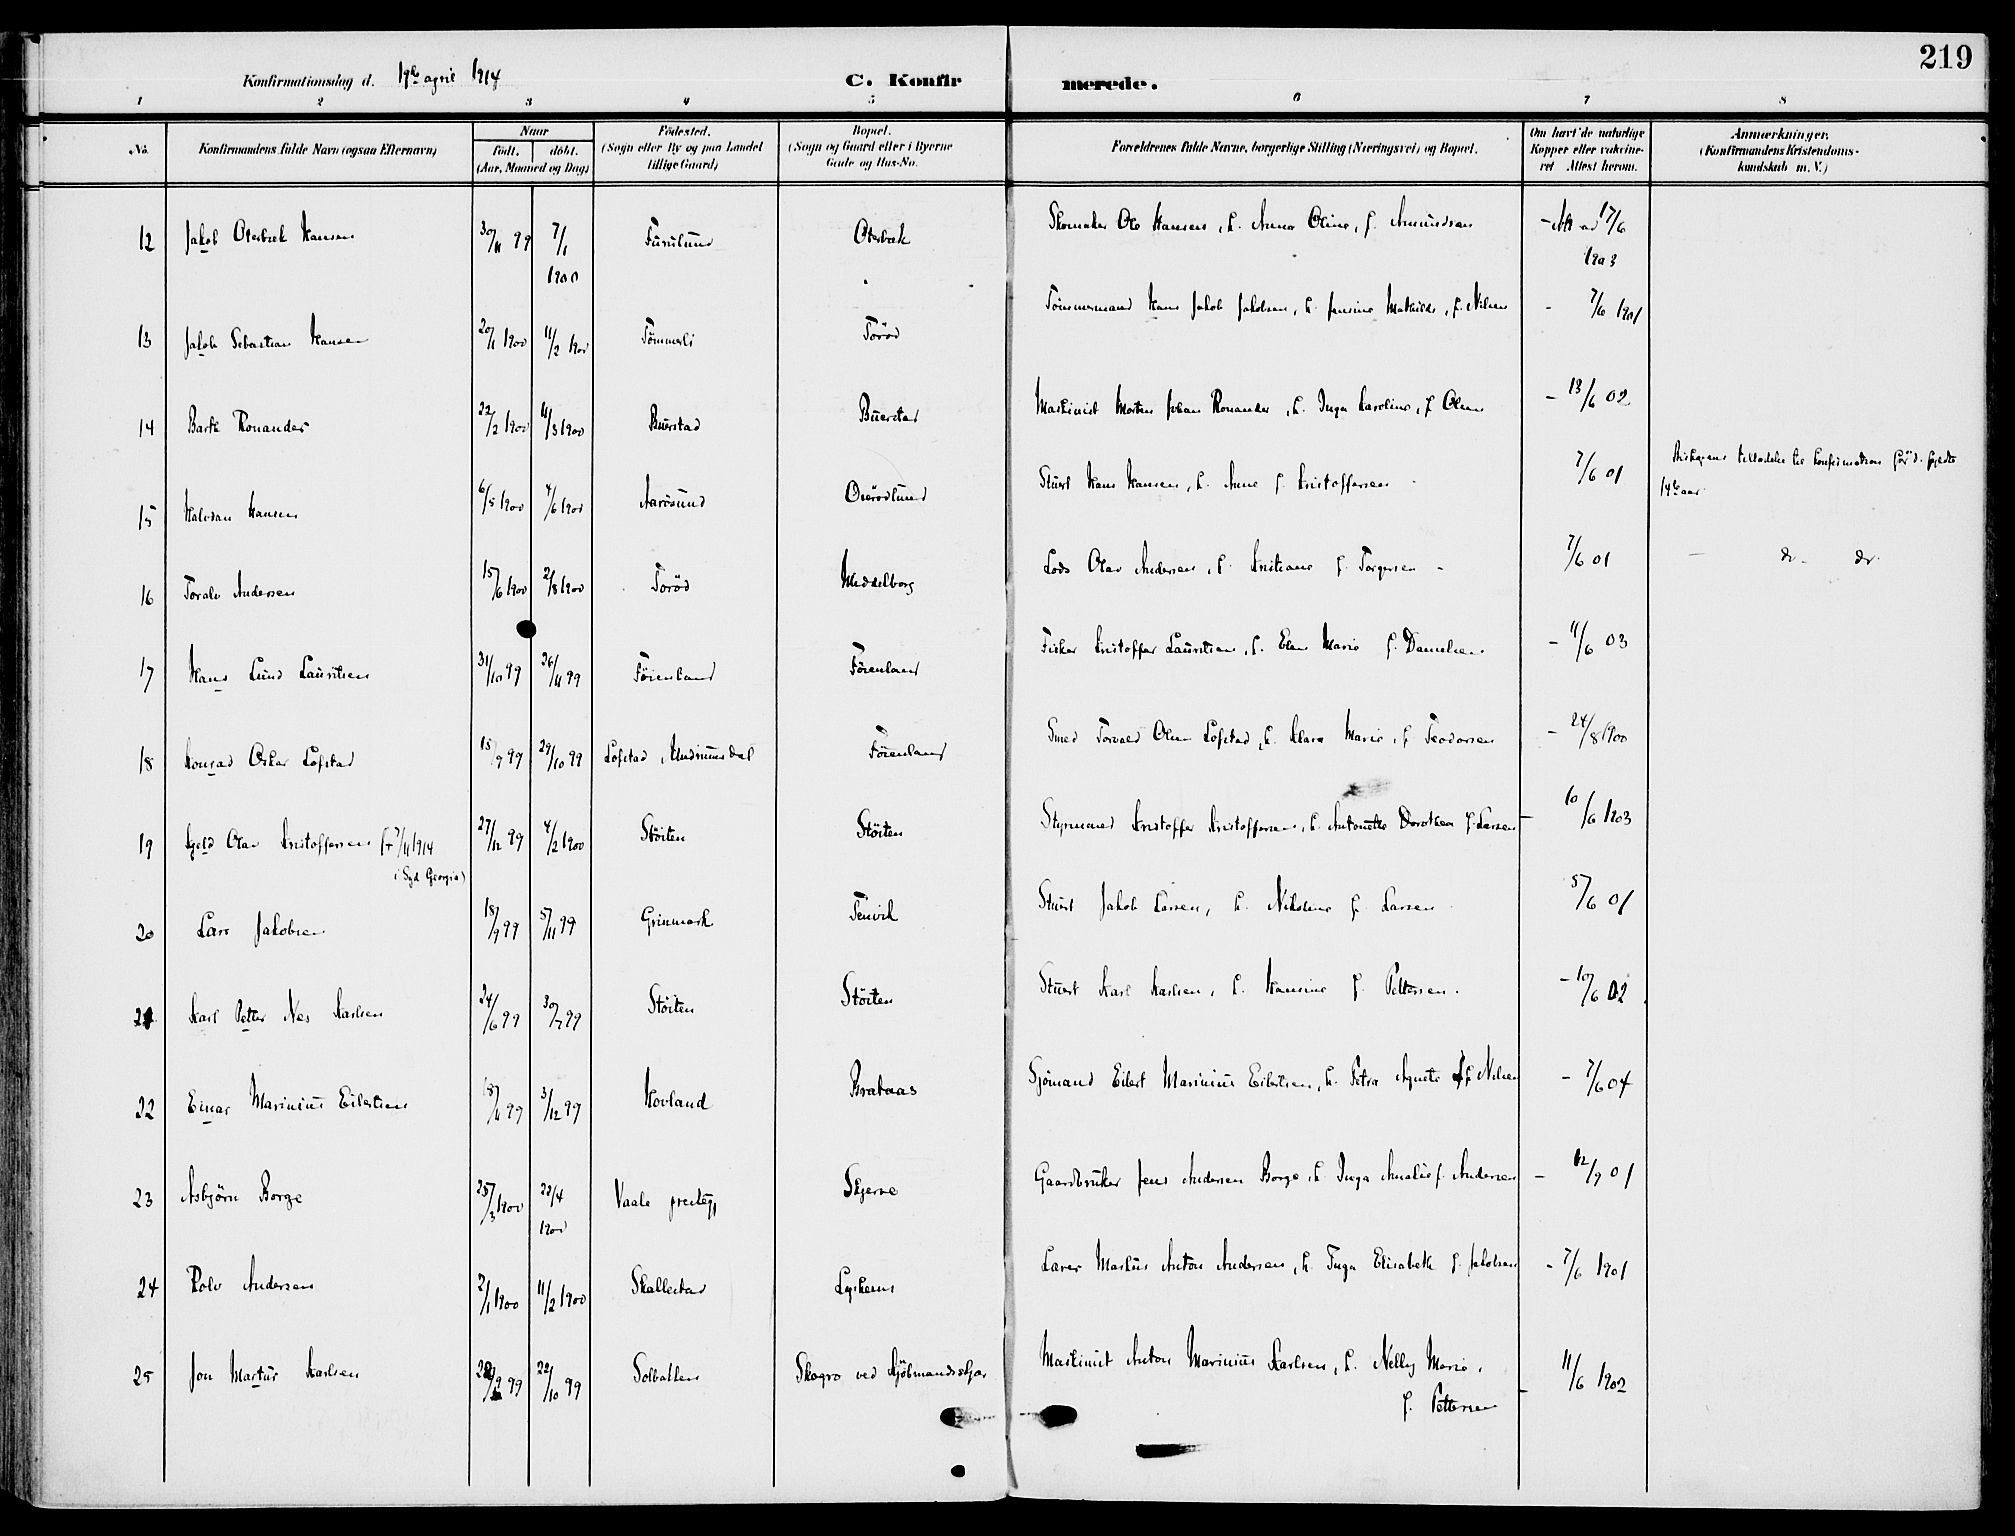 219
Konfirmationsdag d. 19de april 1914 C. Konfirmerede.
1 2 3 4 5 6 7 8
No. Konfirmandens fulde Navn (ogsaa Efternavn) Naar født. døbt. (Aar, Maaned og Dag) Fødested. (Sogn eller By og paa Landet tillige Gaard) Bopæl. (Sogn og Gaard eller i Byerne Gade og Hus-No. Forældrenes fulde Navne, borgerlige Stilling (Næringsvei) og Bopæl. Om havt de naturlige Kopper eller vaksineret Attest herom. Anmærkninger. (Konfirmandens Kristendomskundskab m. V.)
12 Jakob Oterbæk Hansen 30/11 99 7/1 1900 Furulund Oterbæk Skomaker Ole Hansen, h. Anna Oline, f. Amundsen 17/6 1903
13 Jakob Sebastian Hansen 20/1 1900 11/2 1900 Tömmerli Torød Tömmermand Hans Jakob Jakobsen, h. Jensine Mathilde, f. Nilsen - 7/6 1901
14 Barth Ronander 22/2 1900 11/3 1900 Buerstad Buerstad Maskinist Morten Johan Ronander, h. Inga Karoline, f. Olsen - 13/6 02
15 Halvdan Hansen 6/5 1900 4/6 1900 Aarøsund Oserødlund Stuert Hans Hansen, h. Anne f. Kristoffersen 7/6 01 Biskopens tilladelse til konfirmation før d. fyldte
14de aar.
16 Toralv Andersen 15/6 1900 2/8 1900 Torød Meddelborg Lods Olav Andersen, h. Kristiane f. Torgersen - 7/6 01 - do - do.
17 Hans Lund Lauritsen 31/10 99 26/11 99 Föienland Föienland Fisker Kristoffer Lauritsen, h. Elen Marie f. Danielsen - 11/6 03
18 Konrad Oskar Lofstad 15/9 99 29/10 99 Lofstad, Undrumsdal Föienland Smed Torvald Olsen Lofstad, h. Klara Marie, f. Teodorsen - 24/8 1900
19 Kjeld Olav Kristoffersen (+ 7/11 1914
i Syd Georgia) 27/12 99 4/2 1900 Stöiten Stöiten Styrmand Kristoffer Kristoffersen, h. Antonette Dorothea f. Larsen - 10/6 1903
20 Lars Jakobsen 18/9 99 5/11 99 Grinmark Tenvik Stuert Jakob Larsen, h. Nikoline f. Larsen 5/6 01
21 Karl Petter Nes Karlsen 24/6 99 30/7 99 Stöiten Stöiten Stuert Karl Karlsen, h. Hansine f. Pettersen. - 10/6 02
22 Einar Marinius Eilertsen 18/11 99 3/12 99 Hovland Brataas Sjömand Eilert Marinius Eilertsen, h. Petra Agnete f. Nilsen - 7/6 04
23 Asbjörn Borge 25/3 1900 22/4 1900 Vaale prestegj Skjerve Gaardbruker Jens Andersen Borge, h. Inga Amalie f. Andersen - 12/9 01
24 Rolv Andersen 2/1 1900 11/2 1900 Skallestad Lysheim Larer Markus Anton Andersen, h. Inga Elisabeth f. Jakobsen - 7/6 1901
25 Jon Martur Karlsen 99 22/10 99 Solbakken Skogro ved Kjöbmandsskjær Maskinist Anton Marinius Karlsen, h. Nelly Marie,
f. Pettersen - 11/6 1902